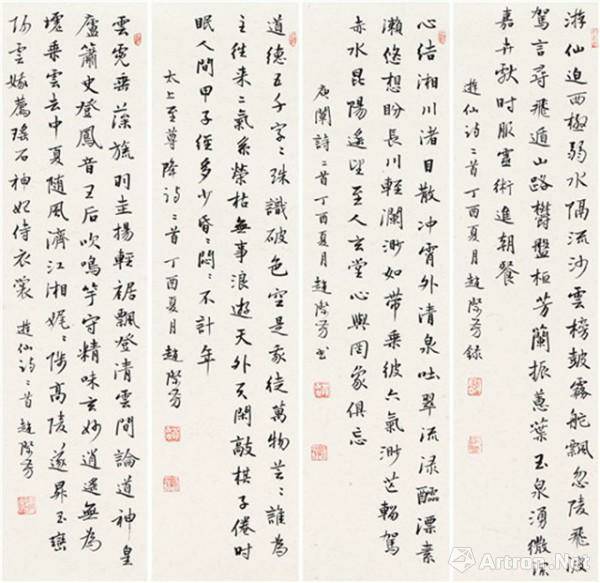 游仙迫西極弱水隔流沙雲榜鼓霧舵飄忽陵飛波
駕言尋飛遁山路鬱盤桓芳蘭振蕙葉玉泉湧微瀾
嘉卉獻時服靈術進朝餐
遊仙詩二首丁酉夏月趙際芳錄
心結湘川渚目散沖霄外清泉吐翠流淥醽漂素
瀨悠想盼長川輕瀾渺如帶乘彼六氣渺芒輜駕
赤水昆陽遙望至人玄堂心與罔象俱忘
庾闡詩二首丁酉夏月趙際芳書
道德五千字〻殊識破色空是我徒萬物芸〻誰為
主往來二氣系榮枯無事浪遊天外天閑敲棋子倦時
眠人間甲子經多少昏〻悶〻不計年
太上至尊降詩二首丁酉夏月趙際芳
雲霓垂藻旒羽圭揚輕裾飄登清雲間論道神皇
廬簫史登鳳音王后吹鳴竽守精味玄妙逍遙無為
墟乘雲去中夏隨風濟江湘娓〻陟高陵遂昇玉巒
陽雲娥薦瓊石神妃侍衣裳 遊仙詩二首趙際芳
Artron.Net